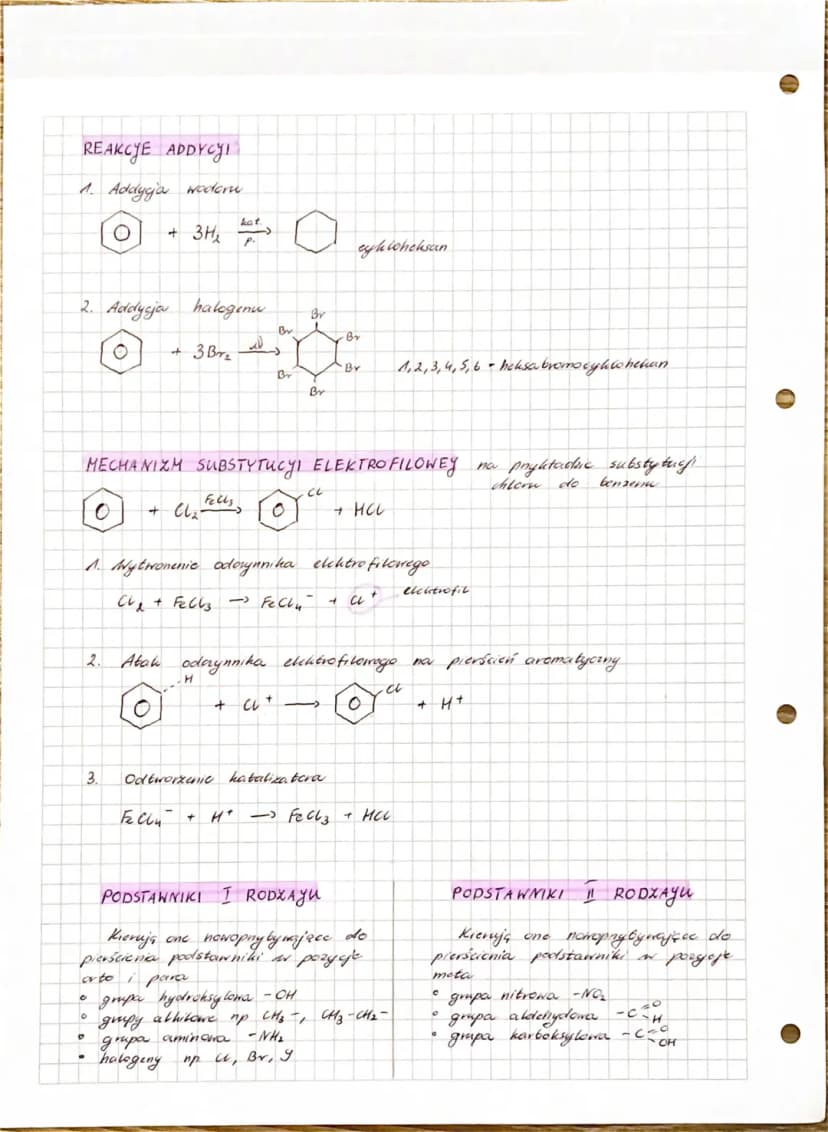 REAKCJE ADDYCJI
1. Addycja wodoru
+ 3H₂ kat. p. →
cykloheksan
2. Addycja halogenu
+ 3Br₂ → Br Br Br Br Br Br
1,2,3,4,5,6 - heksabromocykloheksan
MECHANIZM SUBSTYTUCJI ELEKTROFILOWEJ na przykładzie substytucji
chloru do benzenu
+ Cl₂ FeCl₃ → Cl + HCl
1. Wytworzenie odczynnika elektrofilowego
Cl₂ + FeCl₃ → FeCl₄⁻ + Cl⁺ elektrofil
2. Atak odczynnika elektrofilowego na pierścień aromatyczny
H + Cl⁺ → Cl + H⁺
3. Odtworzenie katalizatora
FeCl₄⁻ + H⁺ → FeCl₃ + HCl
PODSTAWNIKI I RODZAJU
Kierują one nowoprzybywające do
pierścienia podstawniki w pozycje
orto i para
• grupa hydroksylowa -OH
• grupy alkilowe np CH₃-, CH₃-CH₂-
• grupa aminowa -NH₂
• halogeny np Cl, Br, J
PODSTAWNIKI II RODZAJU
Kierują one nowoprzybywające do
pierścienia podstawniki w pozycje
meta
• grupa nitrowa -NO₂
• grupa aldehydowa -C=O H
• grupa karboksylowa -C=O OH